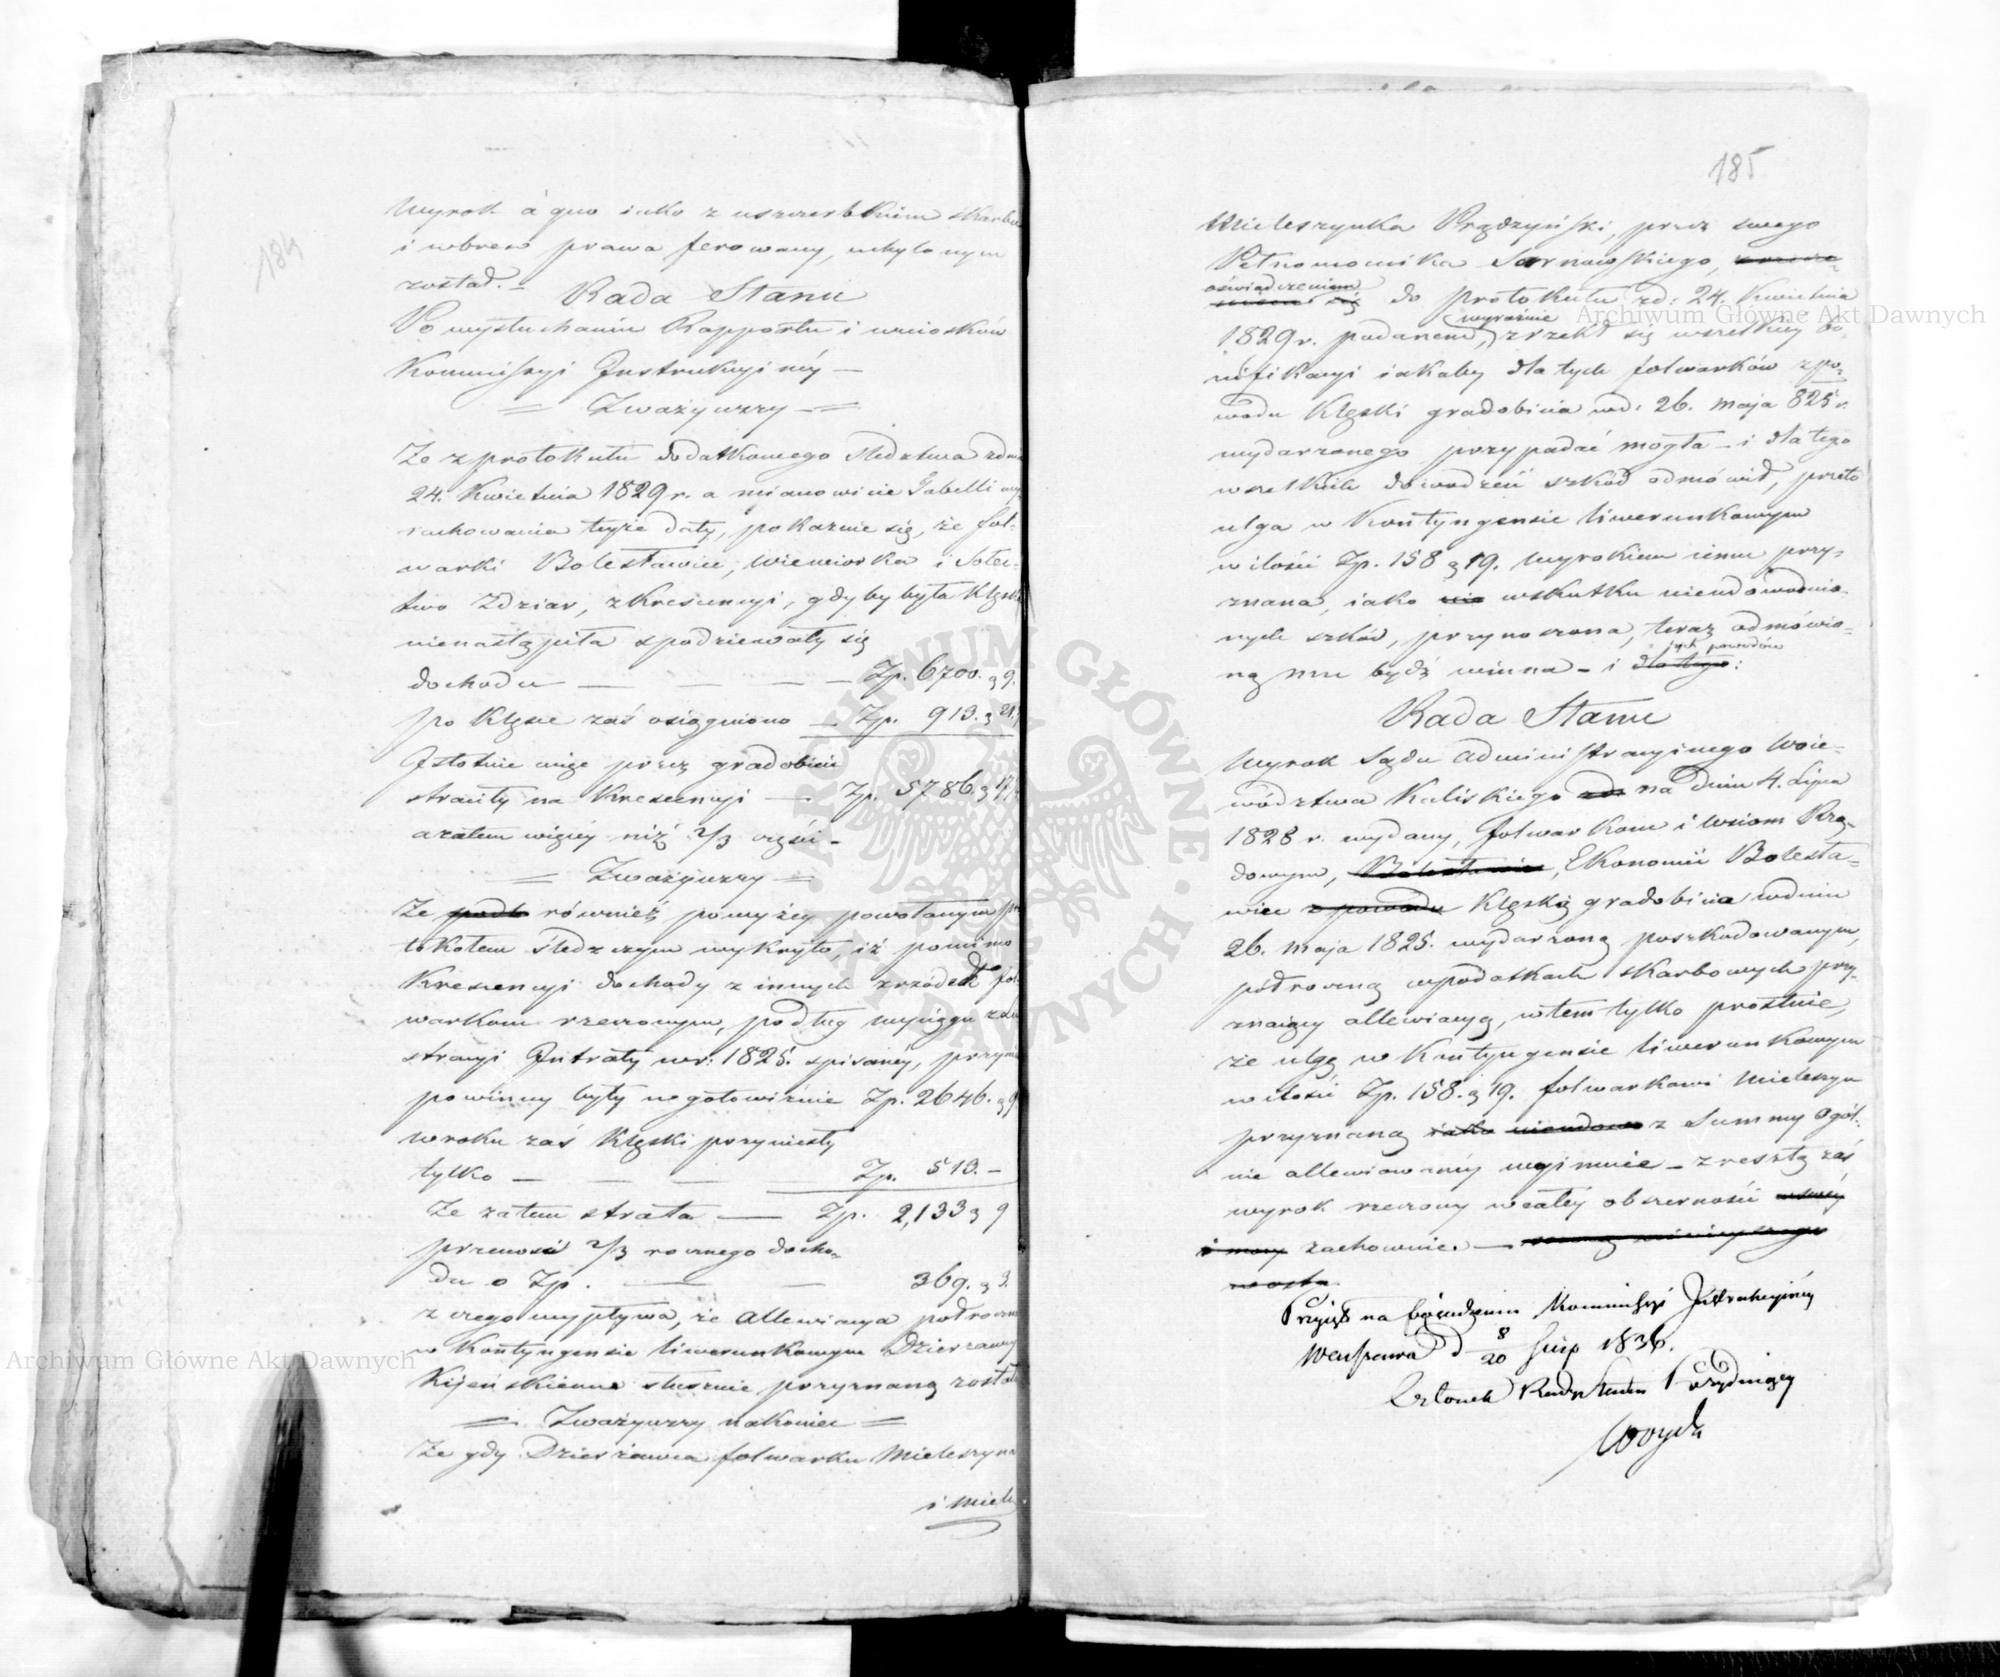 184
Wyrok á quo iako z uszczerbkiem Skarbu
i wbrew prawa ferowany, uchylonym
został. –
Rada Stanu
Po wysłuchaniu Rapportu i wniosków
Kommissyi Instrukcyinéy —
= Zważywszy =
Że z protokułu dodatkowego śledztwa z dnia
24. Kwietnia 1829 r. a mianowicie Tabelli wy-
rachowania teyże daty, pokazuie się, że fol-
warki Bolesławiec, Wiewiorka i Sołec-
two Zdziar, z krescencyi, gdyby była klęska
nienastąpiła spodziewały się
dochodu — — — — Zp. 6700. g 9.
po klęsce zaś osiągniono — Zp. 913. g 21.
Istotnie więc przez gradobicie
straciły na krescencyi — Zp. 5786. g 17.
azatem więcéy niż 2/3 części –
= Zważywszy =
Że również powyżey powołanym pro
tokołem śledczym wykryto, iż pomimo
Krescencyi dochody z innych zrzódeł fol
warkom rzeczonym, podług wyciągu z
stracyi Intraty w r: 1825. spisanéy, przynie
powinny były w gotowiźnie Zp. 2646. g 9
w roku zaś klęski przyniosły
tylko — — — — Zp. 513. –
Że zatem strata — Zp. 2,133 g 9
przenosi 2/3 rocznego docho-
du o Zp. — — 369. g 3.
z czego wypływa, że allewiacya półroczna
w Kontyngensie liwerunkowym Dzierzawcy
Kijeńskiemu słusznie przyznaną została
= Zważywszy nakoniec =
Że gdy Dzierżawca folwarku Mieleszyna
i Miele
185
Mieleszynka Prądzyński, przez swego
Pełnomocnika Sarnowskiego,
oświadczeniem
do protokułu z d: 24. Kwietnia
wyraźnie
1829 r. podanem, zrzekł się wszelkiéy bo-
nifikacyi iakaby dla tych folwarków z po-
wodu klęski gradobicia w d: 26. Maja 825 r.
wydarzonego przypadać mogła – i dla tego
wszelkich dowodzeń szkód odmówił, przeto
ulga w Kontyngensie liwerunkowym
w ilości Zp. 158 g 19. Wyrokiem iemu przy-
znana, iako nie wskutku nieudowodnio-
nych szkód, przynoszona, teraz odmówio-
tych powodów
ną mu bydź winna – i dla tego:
Rada Stanu
Wyrok Sądu Administracyinego Woie-
wództwa Kaliskiego na dniu 4. Lipca
1828 r. wydany, folwarkom i wsiom Rzą-
dowym, Bolesławiec, Ekonomii Bolesła-
wiec z powodu Klęską gradobicia w dniu
26. Maja 1825. wydarzoną poszkodowanym,
półroczną w podatkach skarbowych przy-
znaiący allewiacyą, w tem tylko prostuie,
że ulgę w Kontyngensie liwerunkowym
w ilości Zp. 158. g 19. folwarkowi Mieleszyn
przyznaną iako nieudowo z Summy Ogól-
nie allewiowanéy wyimuie – z resztą zaś
wyrok rzeczony w całey obszerności
i mocy zachowuie. —
Przyięto na posiedzeniu Kommissyi Instrukcyinéy
w Warszawie d 8/20 1836.
Członek Rady Stanu Prezyduiący
Woyda
Archiwum Główne Akt Dawnych
Archiwum Główne Akt Dawnych
ARCHIWUM GŁÓWNE AKT DAWNYCH